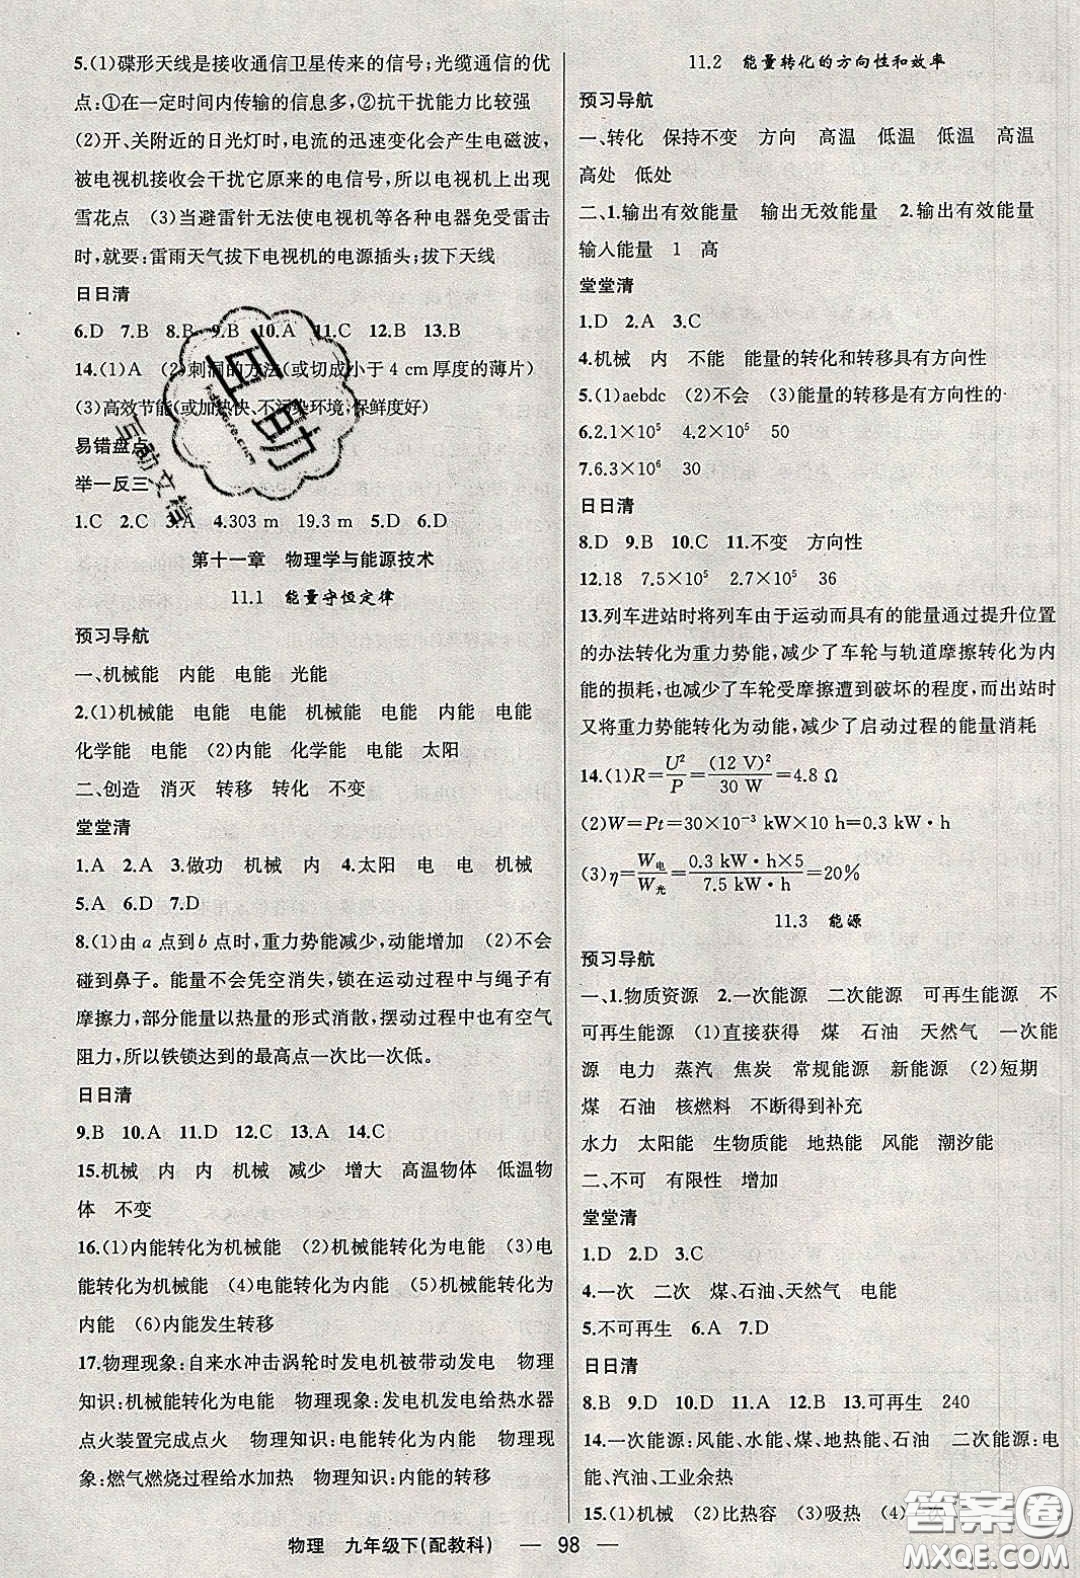 5.(1)碟形天线是接收通信卫星传来的信号;光缆通信的优
点:①在一定时间内传输的信息多,②抗干扰能力比较强
(2)开、关附近的日光灯时,电流的迅速变化会产生电磁波,
被电视机接收会干扰它原来的电信号,所以电视机上出现
雪花点　(3)当避雷针无法使电视机等各种电器免受雷击
时,就要:雷雨天气拔下电视机的电源插头;拔下天线
日日清
6.D　7.B　8.B　9.B　10.A　11.C　12.B　13.B
14.(1)A　(2)刺洞的方法(或切成小于 4 cm 厚度的薄片)
(3)高效节能(或加热快、不污染环境,保鲜度好)
易错盘点
举一反三
1.C　2.C　3.A　4.303 m　19.3 m　5.D　6.D
第十一章　物理学与能源技术
11.1　能量守恒定律
预习导航
一、机械能　内能　电能　光能
2.(1)机械能　电能　电能　机械能　电能　内能　电能
化学能　电能　(2)内能　化学能　电能　太阳
二、创造　消灭　转移　转化　不变
堂堂清
1.A　2.A　3.做功　机械　内　4.太阳　电　电　机械
5.A　6.D　7.D
8.(1)由 a 点到 b 点时,重力势能减少,动能增加　(2)不会
碰到鼻子。能量不会凭空消失,锁在运动过程中与绳子有
摩擦力,部分能量以热量的形式消散,摆动过程中也有空气
阻力,所以铁锁达到的最高点一次比一次低。
日日清
9.B　10.A　11.D　12.C　13.A　14.C
15.机械　内　内　机械　减少　增大　高温物体　低温物
体　不变
16.(1)内能转化为机械能　(2)机械能转化为电能　(3)电
能转化为机械能　(4)电能转化为内能　(5)机械能转化为
内能　(6)内能发生转移
17.物理现象:自来水冲击涡轮时发电机被带动发电　物理
知识:机械能转化为电能　物理现象:发电机发电给热水器
点火装置完成点火　物理知识:电能转化为内能　物理现
象:燃气燃烧过程给水加热　物理知识:内能的转移
11.2　能量转化的方向性和效率
预习导航
一、转化　保持不变　方向　高温　低温　低温　高温
高处　低处
二、1.输出有效能量　输出无效能量　2.输出有效能量
输人能量　1　高
堂堂清
1.D　2.A　3.C
4.机械　内　不能　能量的转化和转移具有方向性
5.(1)aebdc　(2)不会　(3)能量的转移是有方向性的
6.2.1×10⁵　4.2×10⁵　50
7.6.3×10⁶　30
日日清
8.D　9.B　10.C　11.不变　方向性
12.18　7.5×10⁵　2.7×10⁵　36
13.列车进站时将列车由于运动而具有的能量通过提升位置
的办法转化为重力势能,减少了车轮与轨道摩擦转化为内
能的损耗,也减少了车轮受摩擦遭到破坏的程度,而出站时
又将重力势能转化为动能,减少了启动过程的能量消耗
14.(1)R=U²/P=(12 V)²/30 W=4.8 Ω
(2)W=Pt=30×10⁻³ kW×10 h=0.3 kW·h
(3)η=W电/W光=0.3 kW·h×5/7.5 kW·h=20%
11.3　能源
预习导航
一、1.物质资源　2.一次能源　二次能源　可再生能源　不
可再生能源　(1)直接获得　煤　石油　天然气　一次能
源　电力　蒸汽　焦炭　常规能源　新能源　(2)短期
煤　石油　核燃料　不断得到补充
水力　太阳能　生物质能　地热能　风能　潮汐能
二、不可　有限性　增加
堂堂清
1.D　2.D　3.C
4.一次　二次　煤、石油、天然气　电能
5.不可再生　6.A　7.D
日日清
8.B　9.D　10.D　11.A　12.B　13.可再生　240
14.一次能源:风能、水能、煤、地热能、石油　二次能源:电
能、汽油、工业余热
15.(1)机械　(2)比热容　(3)吸热　(4)
物理　九年级下(配教科)　— 98 —
互助
互助文档
答案卷
MXQE.COM